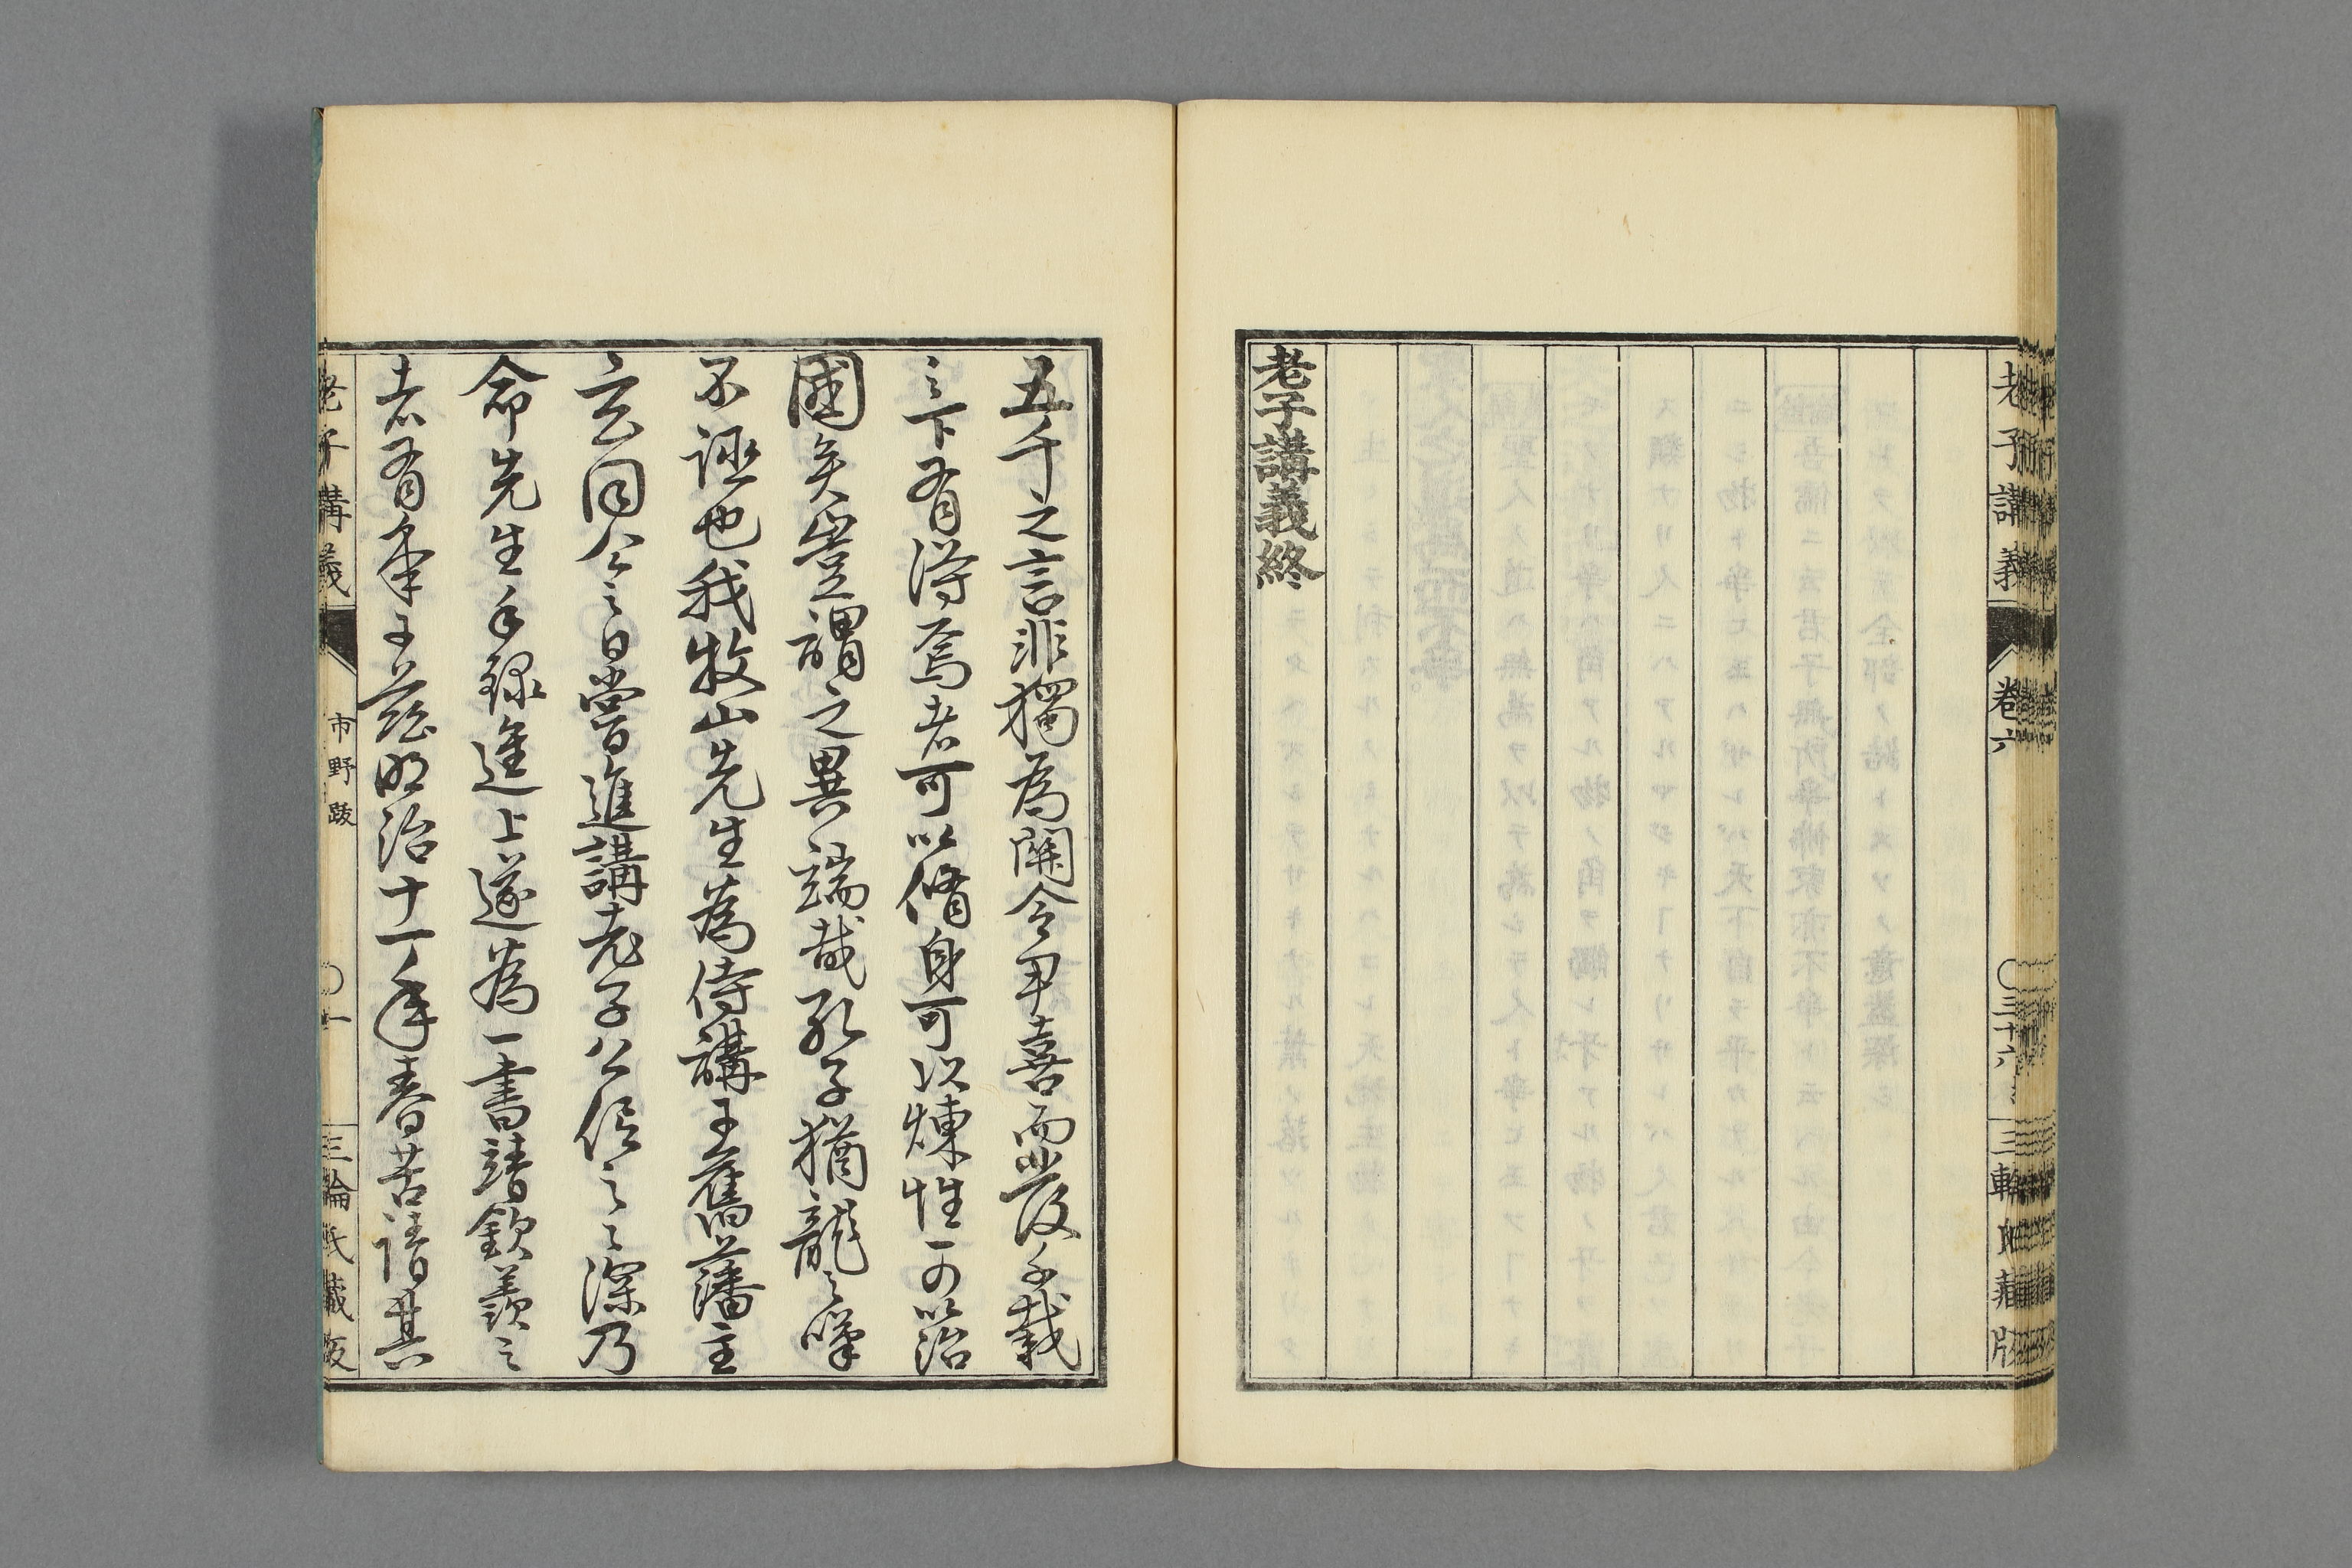 老子講義
卷六
〇三十六
三輪氏藏版
老子講義終
五千之言非獨為關令尹喜而發千載
之下有得焉者可以脩身可以煉性可以治
國矣豈謂之異端哉孔子猶龍之嘆
不誣也我牧山先生為侍講于舊藩主
玄同公之日嘗進講老子公信之之深乃
命先生手録進上遂為一書諸欽羨之
者有年于茲明治十一年春苦請其
老子講義
市野跋
〇一
三輪氏藏版